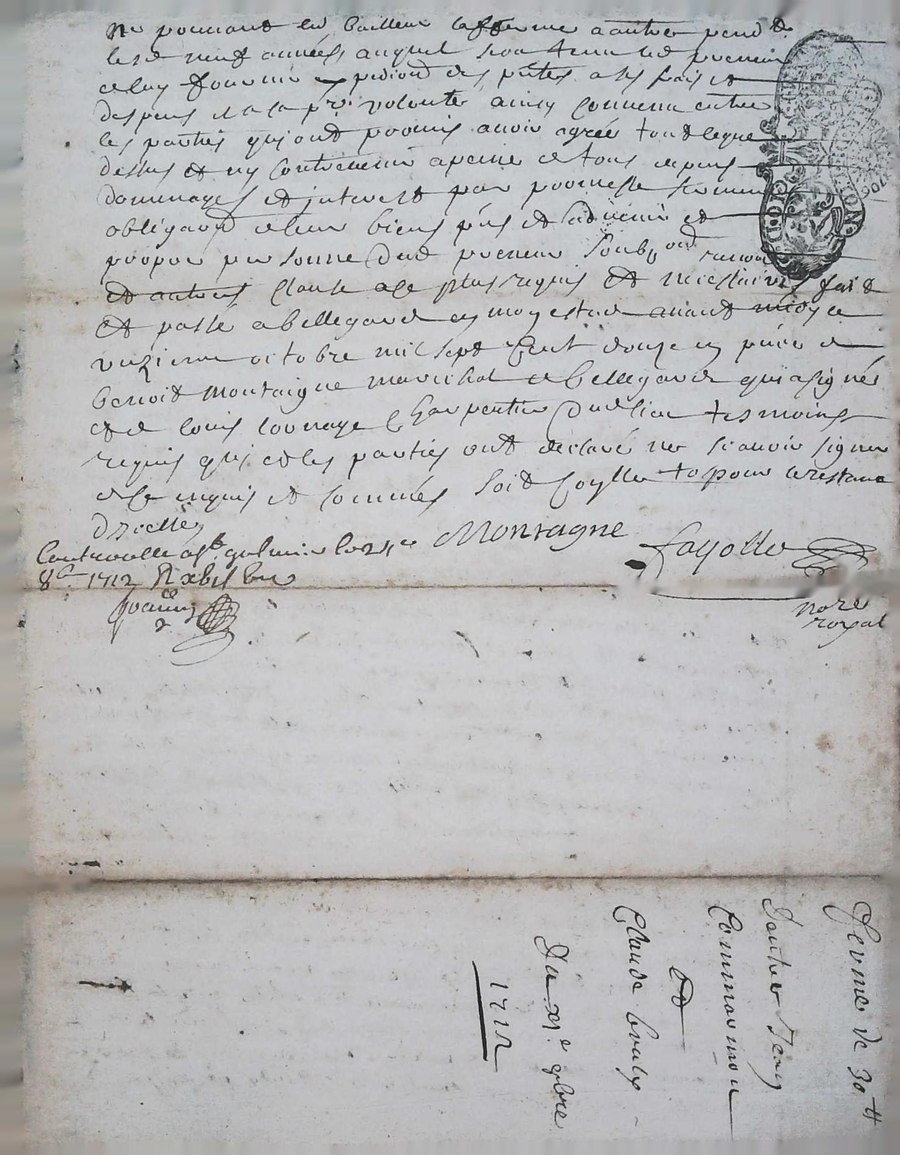 ne pouvant led bailleur lafferme a autre pend.t
lesd neuf années auquel sera tenu led preneur
de luy fournir expedion des pntes a ses frais et
despens a sa pre volonte ainsy convenu entre
les parties qui ont promis avoir agrée tout leque
dessus et ny contrevenir a peine de tous depens
dommages et interest par promesse serment
obligaon de leur biens pns et advenir et
propre personne dud preneur soubz on renon
et autres clause a ce plus requis et necessaires fait
et passé a bellegarde en mo estude avant midy ce
unzieme octobre mil sept cent douze en pnce de
benoist montaigne marechal de bellegarde qui a signé
et de louis charpentier dud lieu tesmoins
requis qui et les parties ont declaré ne scavoir signer
de ce enquis et sommés soit coller to pour
dicelles
Controolle a st galmier le
8e 1712 R
Montagne
fayolle
nore
royal
fferme de 30 tt
Jean
Commarmon
Et
Claude
Du xj e 8bre
1712